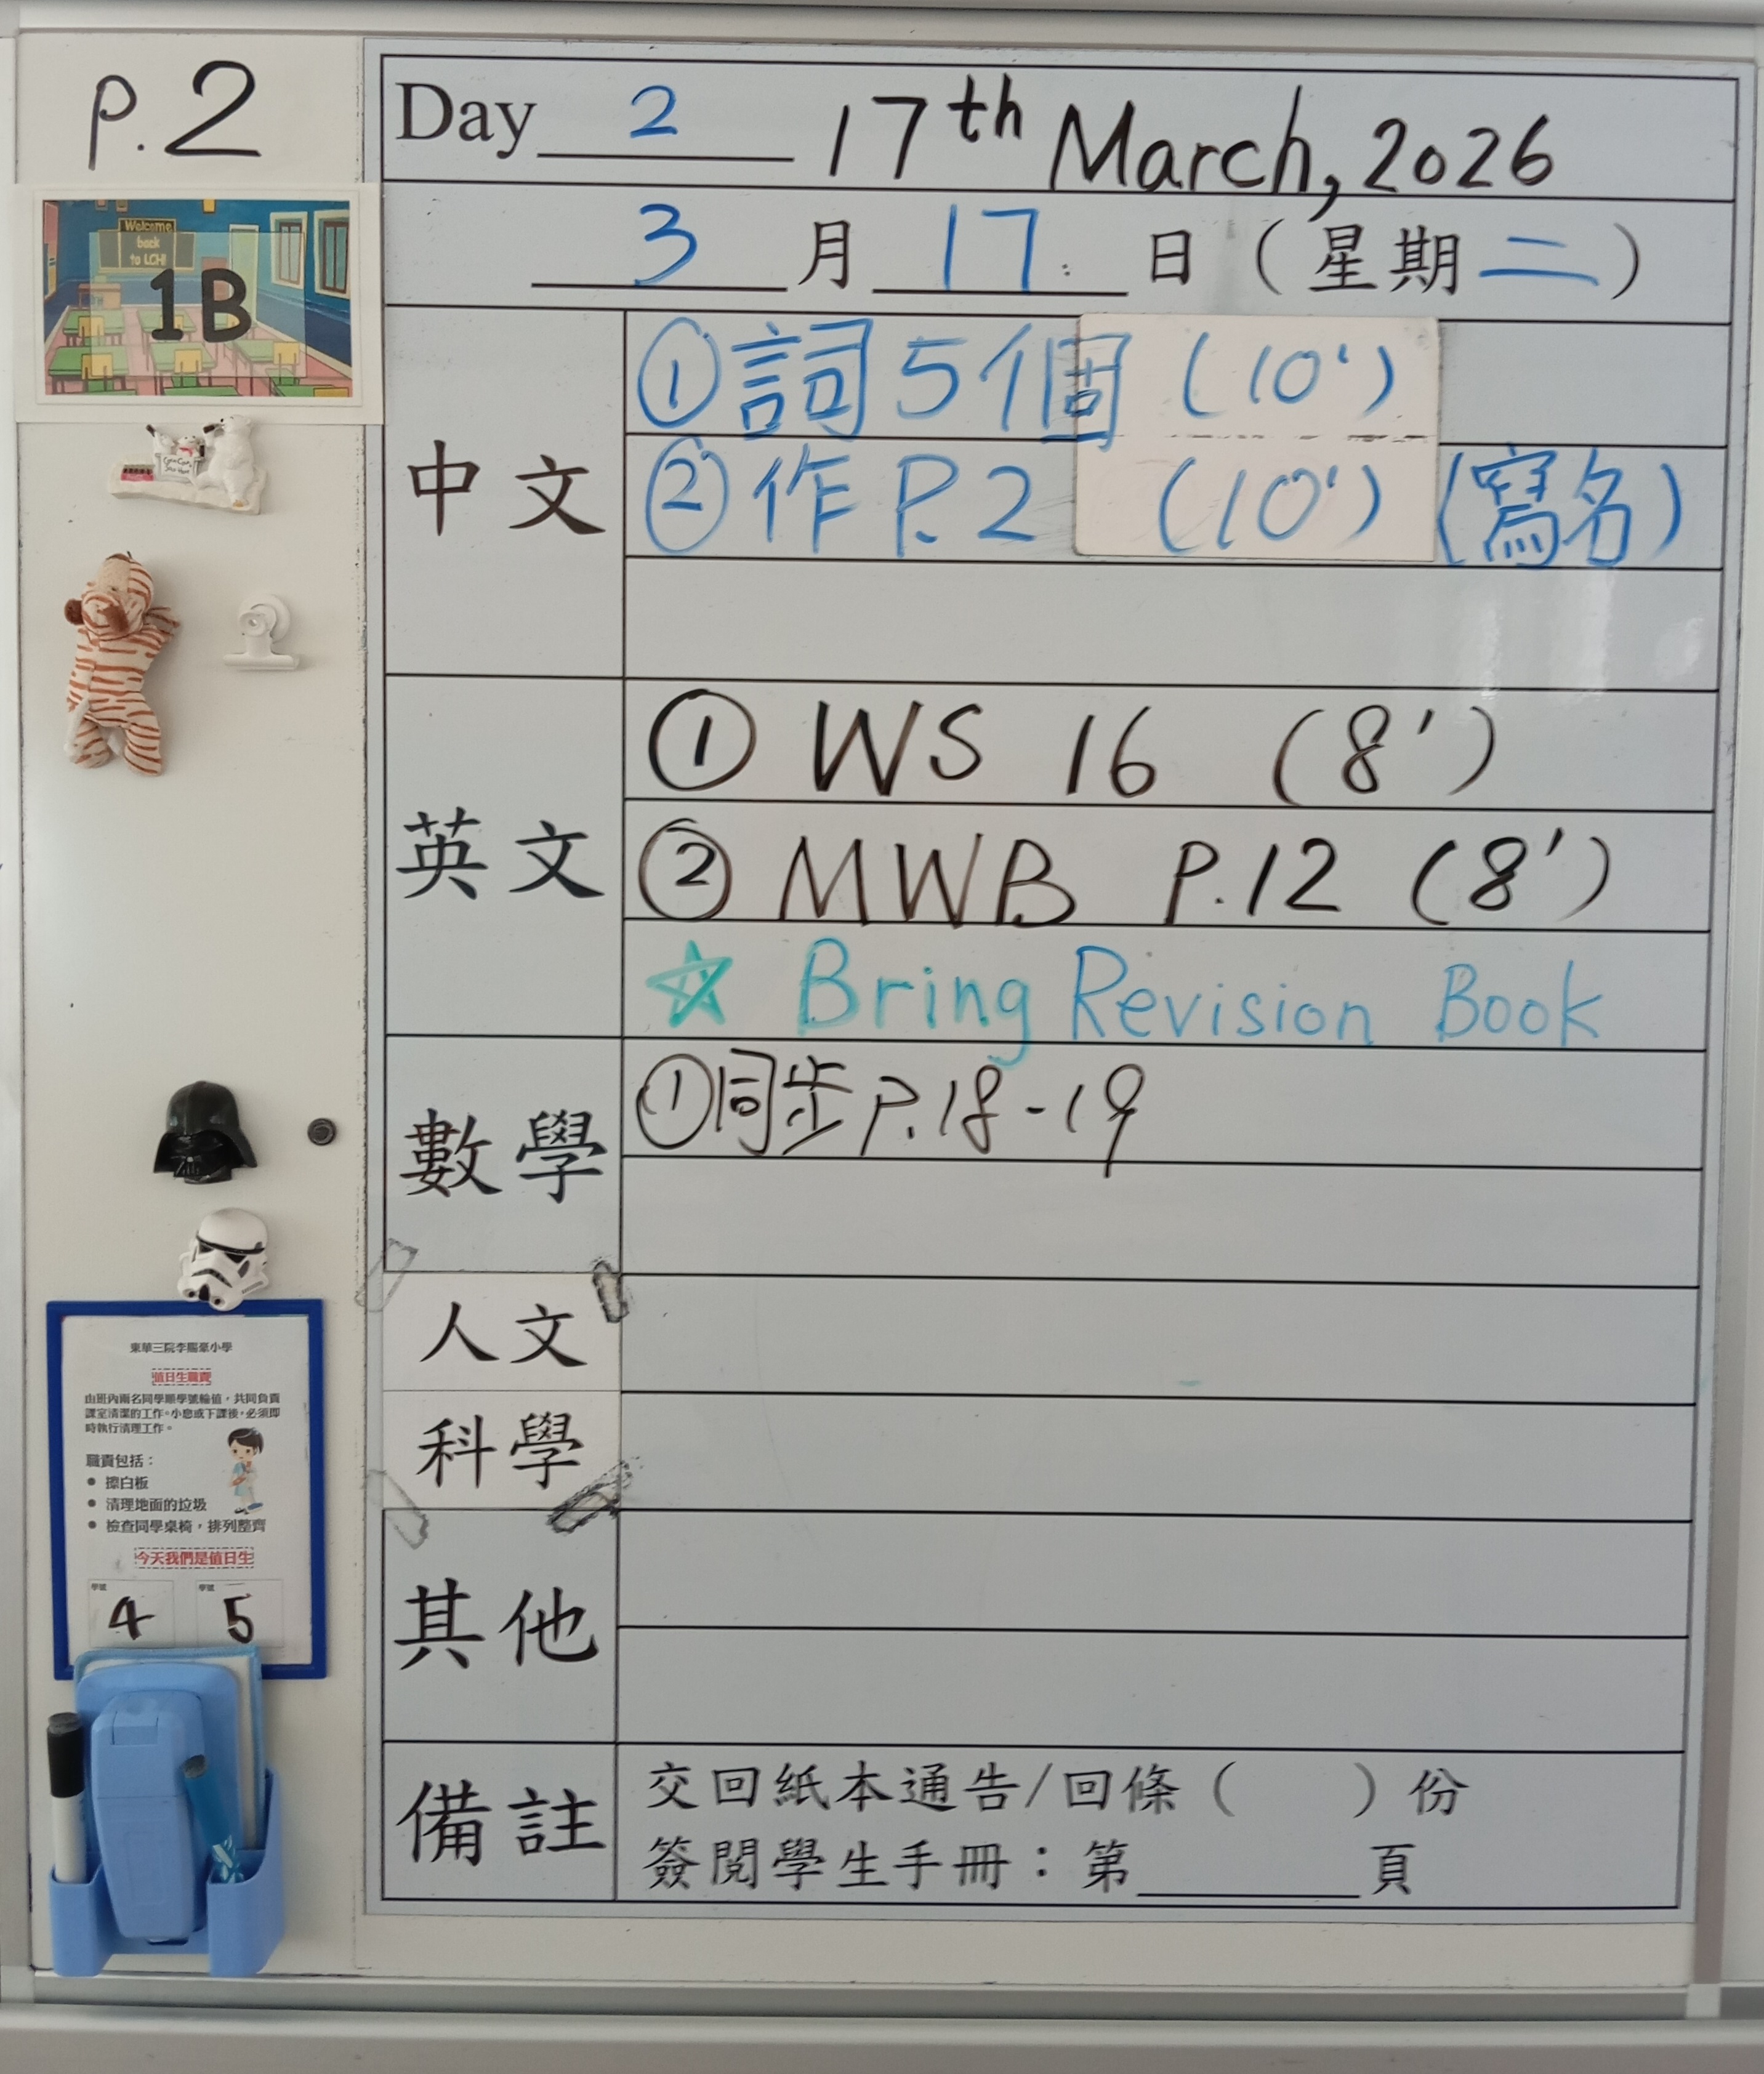 p.2
Day 2 17th March, 2026
3 月 17 日（星期二）
Welcome
back
to LCH!
1B
中文
①詞5個 (10')
②作P.2 (10') (寫名)
英文
① WS 16 (8')
② MWB P.12 (8')
☆ Bring Revision Book
數學
①同步P.18-19
人文
科學
其他
備註
交回紙本通告/回條（ ）份
簽閱學生手冊：第______頁
東華三院李賜豪小學
值日生職責
由班內兩名同學順學號輪值，共同負責
課室清潔的工作。小息或下課後，必須即
時執行清理工作。
職責包括：
• 擦白板
• 清理地面的垃圾
• 檢查同學桌椅，排列整齊
今天我們是值日生
學號 學號
4 5